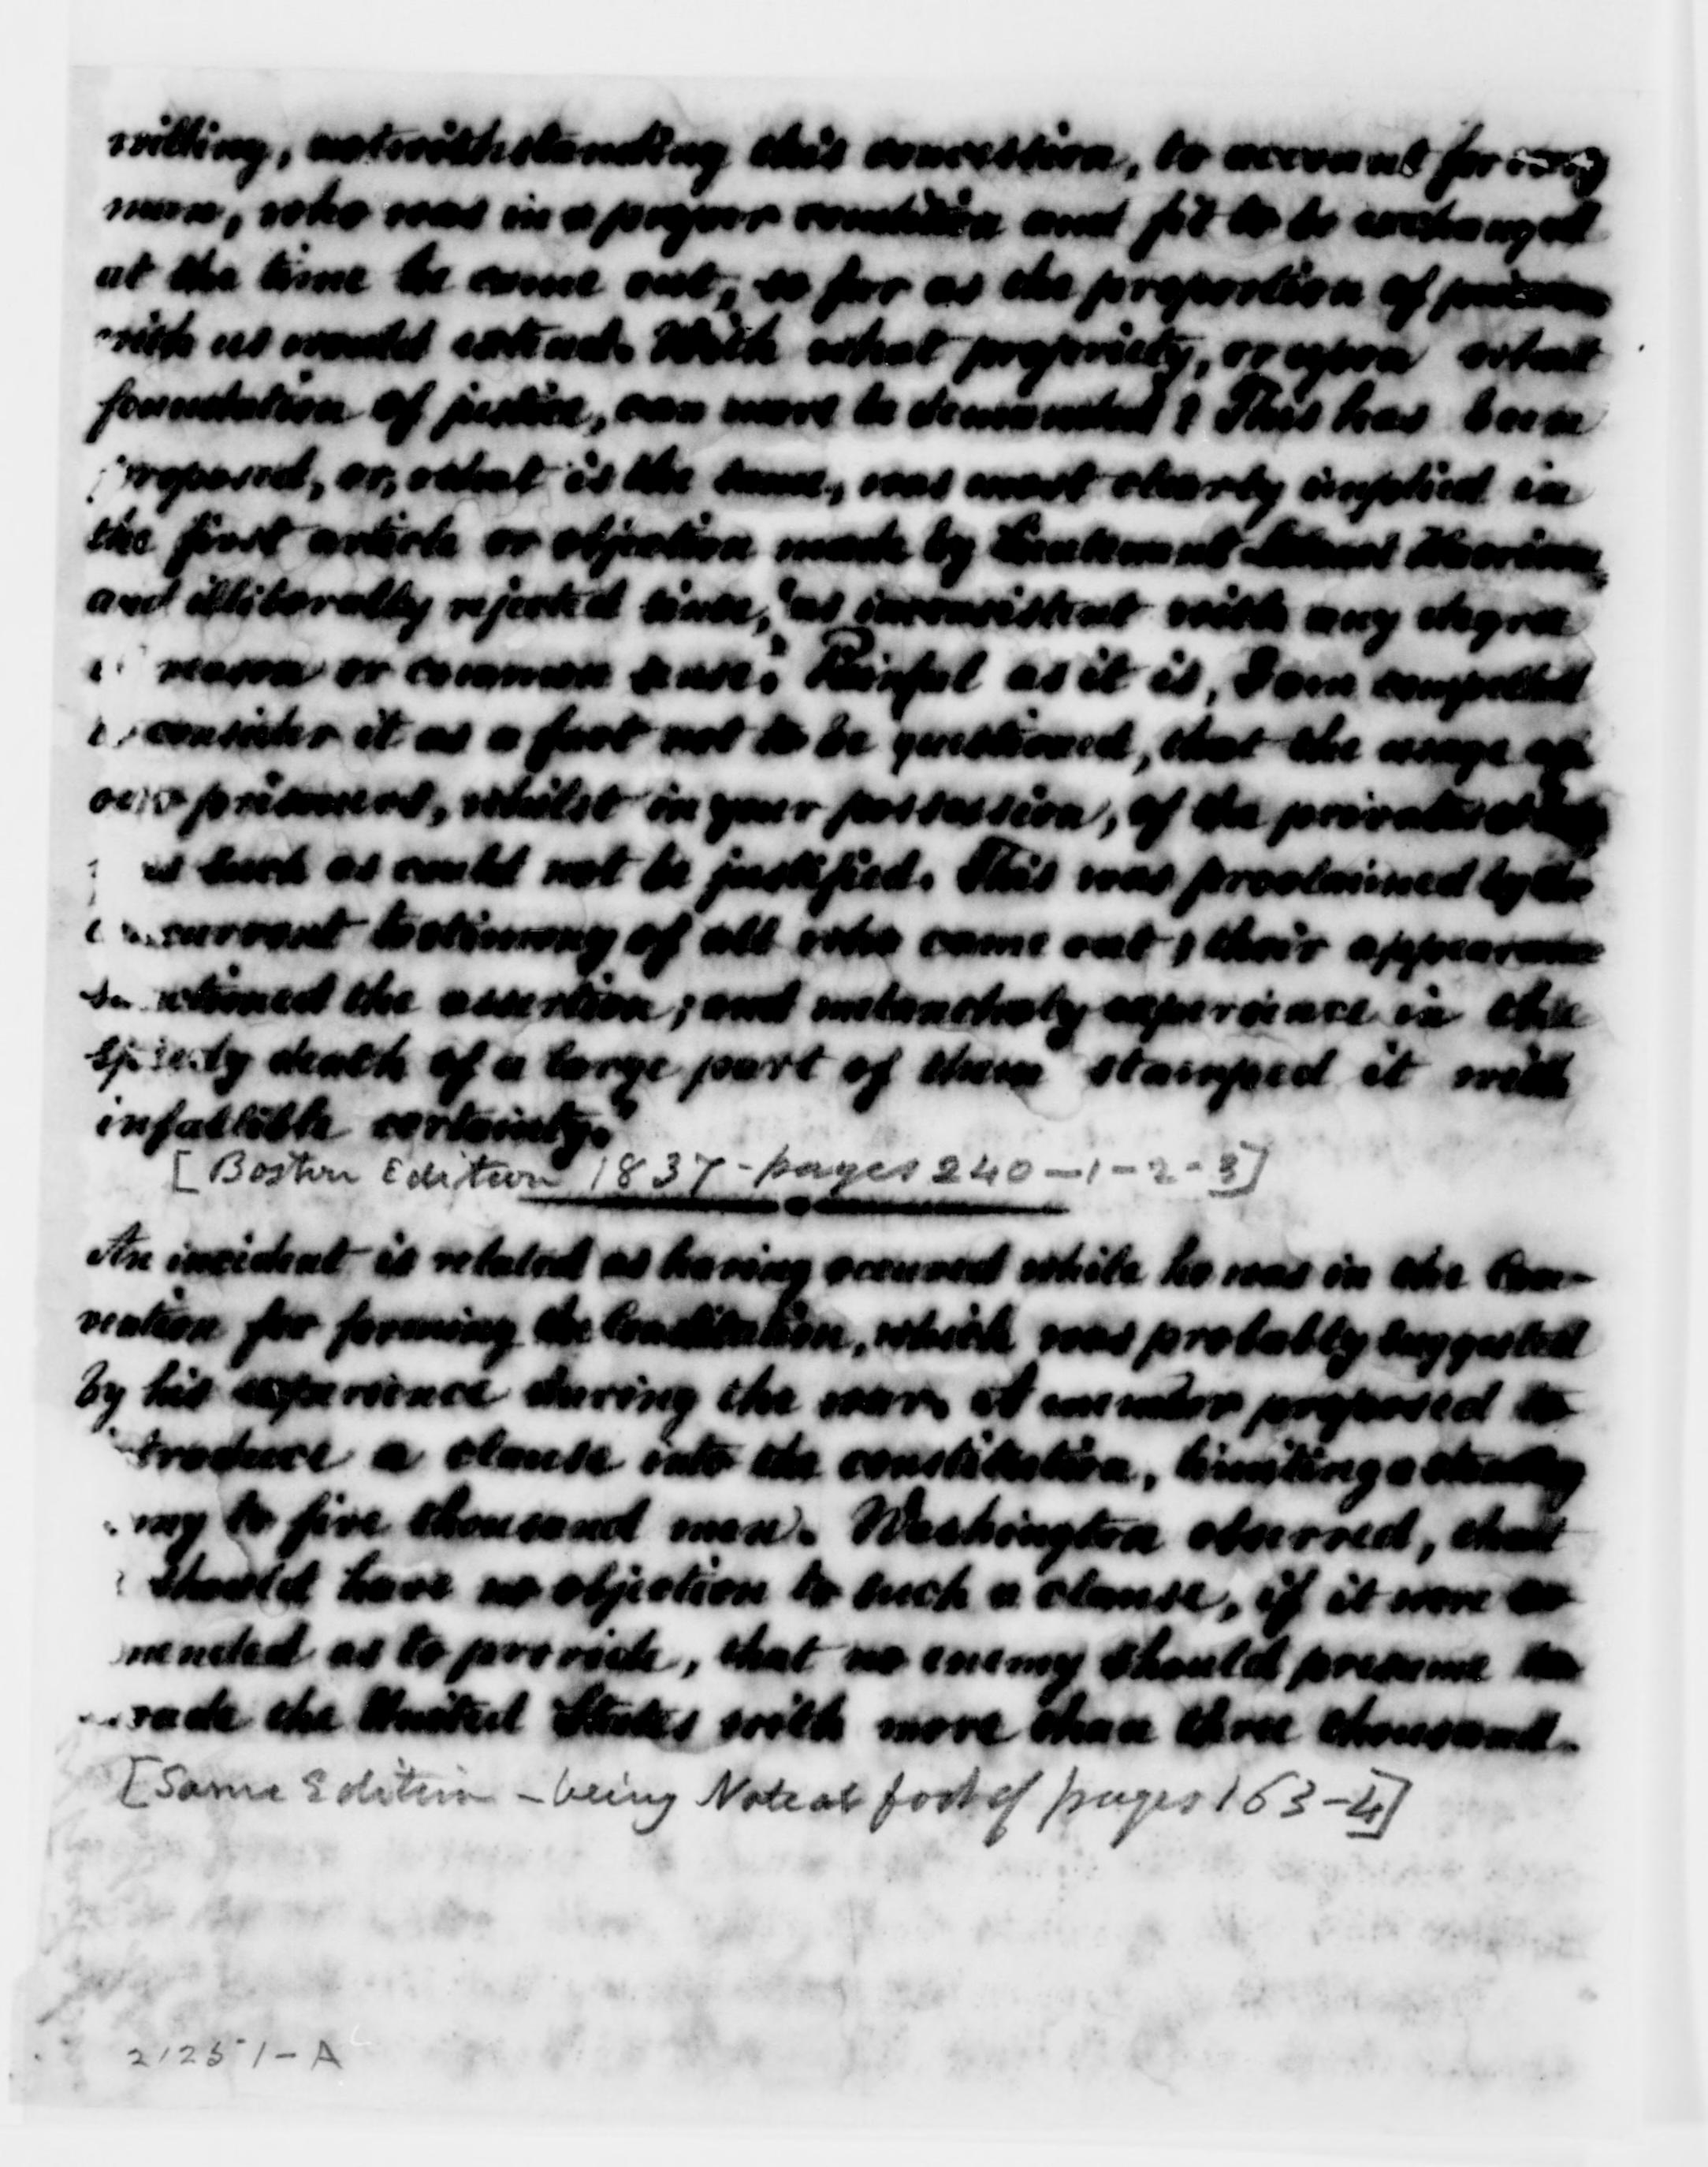 willing, notwithstanding this concession, to account for every
man, who was in a proper condition and fit to be exchanged
at the time he came out, so far as the proportion of
with us would extend. With what propriety, or upon what
foundation of justice, can more be demanded? This has been
proposed, or, what is the same, was most clearly implied in
the first article or objection made by Lieutenant Colonel Harrison,
and illiberally rejected since, "as inconsistent with any degree
reason or common sense." Painful as it is, I am compelled
consider it as a fact not to be questioned, that the usage of
our prisoners, whilst in your possession, of the privates at least,
such as could not be justified. This was proclaimed by the
concurrent testimony of all who came out; their appearance
sanctioned the assertion; and melancholy experience in the
speedy death of a large part of them stamped it with
infallible certainty."
[Boston Edition 1837 - pages 240-1-2-3]
An incident is related as having occurred while he was in the Con-
vention for forming the Constitution, which was probably suggested
by his experience during the war. A member proposed to
introduce a clause into the constitution, limiting a standing
army to five thousand men. Washington observed, that
should have no objection to such a clause, if it were so
amended as to provide, that no enemy should presume to
invade the United States with more than three thousand.
[Same Edition - being Note at foot of pages 163-4]
21251-A